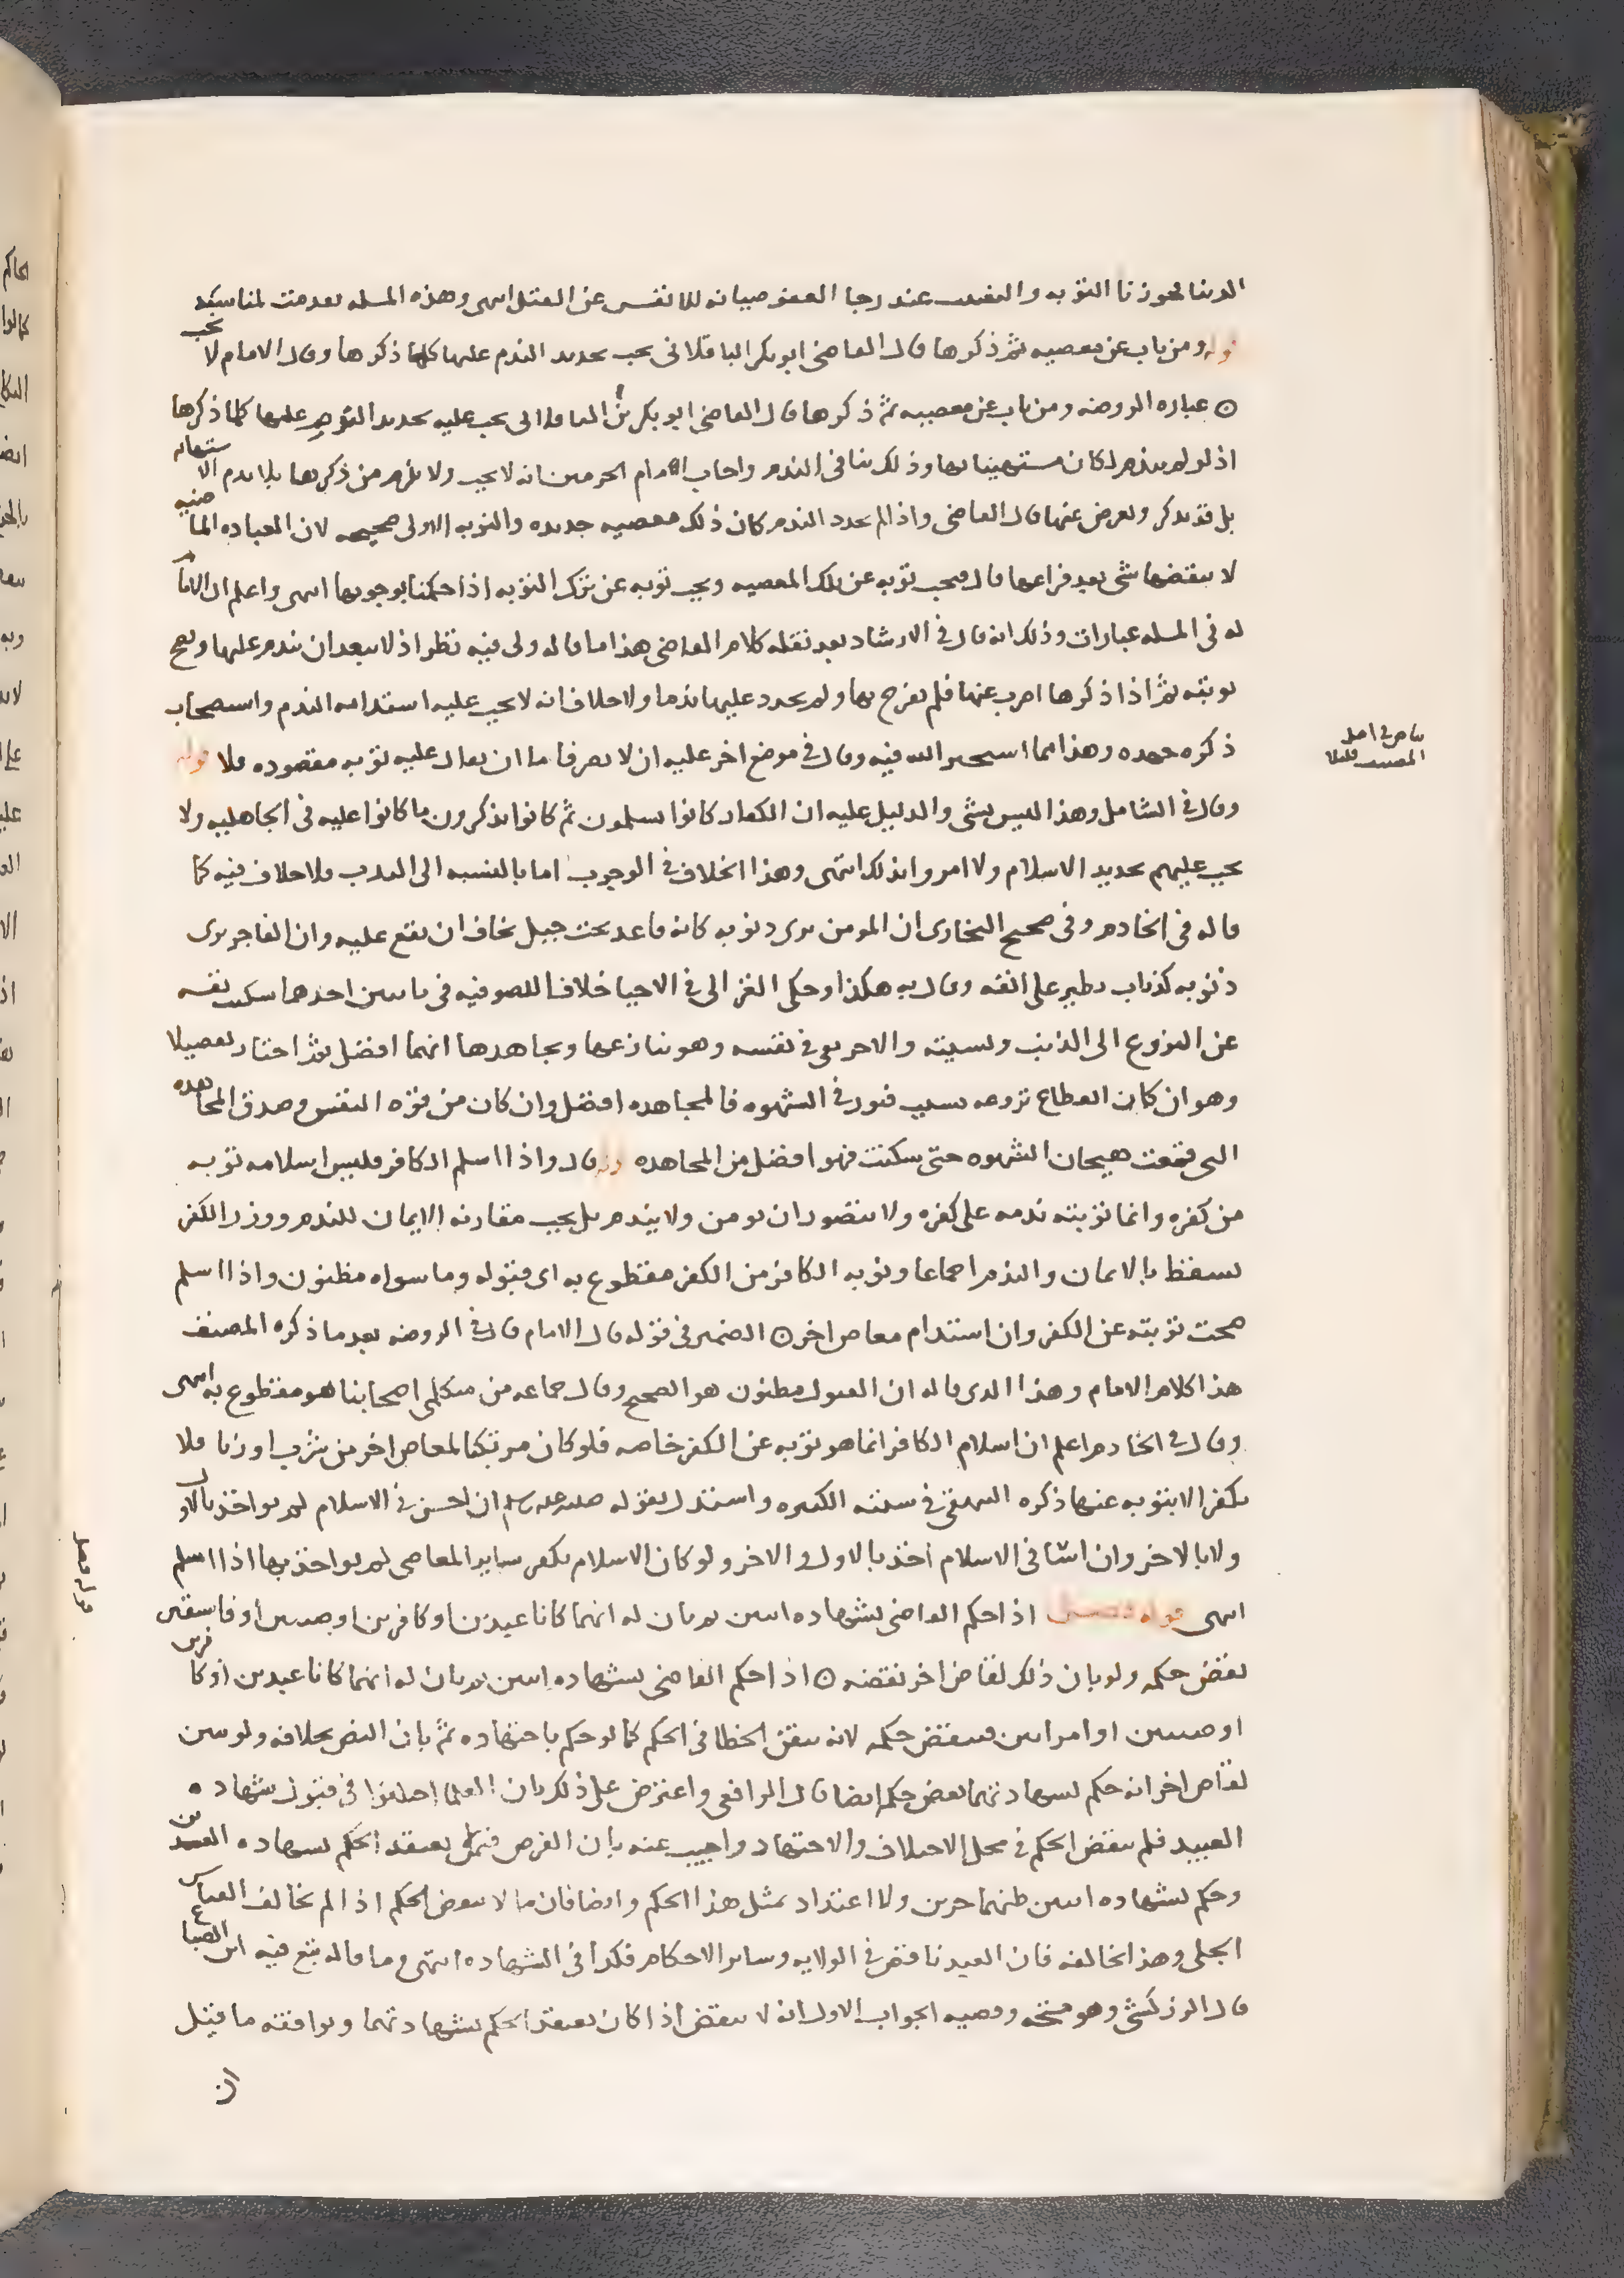 الدنيا لجوزنا التوبه والتفيت عند رجا العفو صيانه للانفس عن القتل انتهى وهذه المسله تقدمت لمناسبته
قوله ومن تاب عن معصيه ثم ذكرها قال القاضي ابو بكر الباقلاني يجب تجديد الندم عليها كلما ذكرها وقال الامام لا يجب
ه عباره الروضه ومن تاب عن معصيه ثم ذكرها قال القاضي ابو بكر بن الباقلاني يجب عليه تجديد التوبه عليها كلما ذكرها
اذ لو لم يندم لكان مستهينا بها وذلك ينافي الندم واجاب الامام الحرمين انه لا يجب ولا يلزم من ذكرها بلا ندم الاستهانه
بل قد يذكر ويعرض عنها قال القاضي واذا لم يجدد الندم كان ذلك معصيه جديده والتوبه الاولى صحيحه لان العباده الماضيه
لا ينقضها شي بعد فراغها قال فيجب توبه عن تلك المعصيه ويجب توبه عن ترك التوبه اذا حكمنا بوجوبها انتهى واعلم ان الامام
له في المسله عبارات وذلك انه قال في الارشاد بعد نقله كلام القاضي هذا ما قاله ولي فيه نظر اذ لا يبعد ان يندم عليها وتصح
توبته ثم اذا ذكرها اضرب عنها فلم يفرح بها ولم يجدد عليها ندما ولا خلاف انه لا يجب عليه استدامه الندم واستصحاب
ذكره جهده وهذا مما استخير الله فيه وقال في موضع اخر عليه ان لا يصر فاما ان يقال عليه توبه مقصوده فلا قوله
وقال في الشامل وهذا ليس بشي والدليل عليه ان الكفار كانوا يسلمون ثم كانوا يذكرون ما كانوا عليه في الجاهليه ولا
يجب عليهم تجديد الاسلام ولا امروا بذلك انتهى وهذا الخلاف في الوجوب اما بالنسبه الى الندب فلا خلاف فيه كما
قاله في الخادم وفي صحيح البخاري ان المومن يرى ذنوبه كانه قاعد تحت جبل يخاف ان يقع عليه وان الفاجر يرى
ذنوبه كذباب يطير على انفه وقال به هكذا وحكى الغزالي في الاحيا خلافا للصوفيه في تايبين احدها سكنت نفسه
عن النزوع الى الذنب ونسيته والاخر بقي في نفسه وهو ينازعها ويجاهدها ايهما افضل ثم اختار تفصيلا
وهو ان كان انقطاع نزوعه بسبب فتور في الشهوه فالمجاهده افضل وان كان من قوه النفس وصدق المجاهده
التي قمعت هيجان الشهوه حتى سكنت فهو افضل من المجاهده قوله قال واذا اسلم الكافر فليس اسلامه توبه
من كفره وانما توبته ندمه على كفره ولا يتصور ان يومن ولا يندم بل يجب مقارنه الايمان للندم ووزر الكفر
يسقط بالايمان والندم اجماعا وتوبه الكافر من الكفر مقطوع به اى قبوله وما سواه مظنون واذا اسلم
صحت توبته عن الكفر وان استدام معاصي اخر ه الضمير في قوله قال الامام قال في الروضه بعد ما ذكره المصنف
هذا كلام الامام وهذا الذي قاله ان القبول مظنون هو الصحيح وقال جماعه من متكلمي اصحابنا هو مقطوع به انتهى
وقال في الخادم اعلم ان اسلام الكافر انما هو توبه عن الكفر خاصه فلو كان مرتبكا لمعاص اخر من شرب او زنا فلا
يكفر الا بتوبه عنها ذكره البيهقي في سننه الكبيره واستدل بقوله صلى الله عليه وسلم ان احسن في الاسلام لم يواخذ بالاول
ولا بالاخر وان اسا في الاسلام اخذ بالاول والاخر ولو كان الاسلام يكفر ساير المعاصي لم يواخذ بها اذا اسلم
انتهى قوله فصل اذا حكم القاضي بشهاده اثنين ثم بان له انهما كانا عبدين او كافرين او صبيين او فاسقين
نقض حكمه ولو بان ذلك لقاض اخر نقضه ه اذا حكم القاضي بشهاده اثنين ثم بان له انهما كانا عبدين او كافرين
او صبيين او امراتين فينقض حكمه لانه تيقن الخطا في الحكم كما لو حكم باجتهاده ثم بان النص بخلافه ولو تبين
لقاض اخر انه حكم بشهادتهما نقض حكمه ايضا قال الرافعي واعترض على ذلك بان العلما اختلفوا في قبول شهاده
العبيد فلم ينقض الحكم في محل الاختلاف والاجتهاد واجيب عنه بان الفرض فيمن لا يعتقد الحكم بشهاده العبدين
وحكم بشهاده اثنين ظنهما حرين ولا اعتداد بمثل هذا الحكم وايضا فان ما لا ينقض الحكم اذا لم يخالف القياس
الجلي وهذا يخالفه فان العبد ناقض في الولايه وساير الاحكام فكذا في الشهاده انتهى وما قاله تبع فيه ابن الصباغ
قال الزركشي وهو متجه وقضيه الجواب الاول انه لا ينقض اذا كان يعتقد الحكم بشهادتهما ويوافقه ما قيل
بياض في اصل
المصنف قليلا
قوله فصل